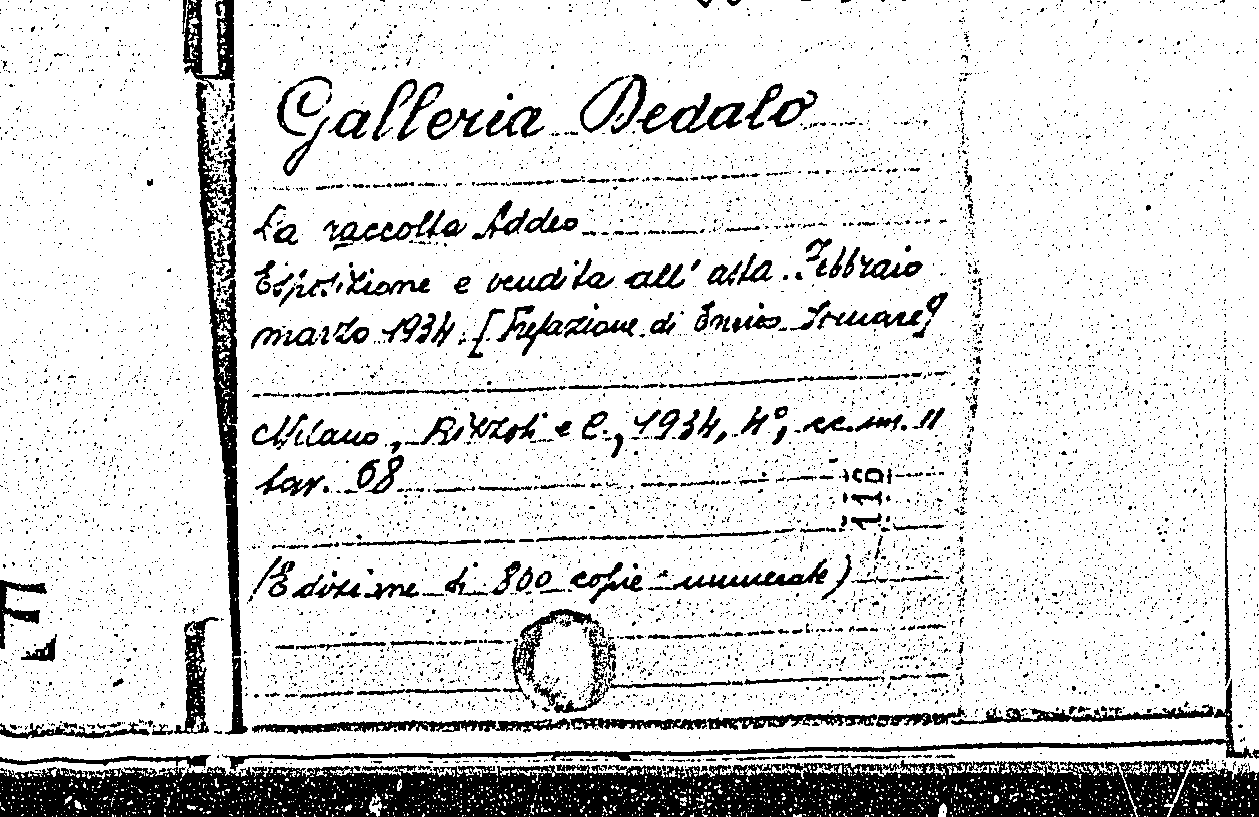 Galleria Dedalo
La raccolta Addeo
Esposizione e vendita all'asta. Febbraio
marzo 1934. [Prefazione di Enrico Somaré]
Milano, Rizzoli e C., 1934, 4°, cc. nn. 11
tav. 68
116
(Edizione di 800 copie numerate)
E